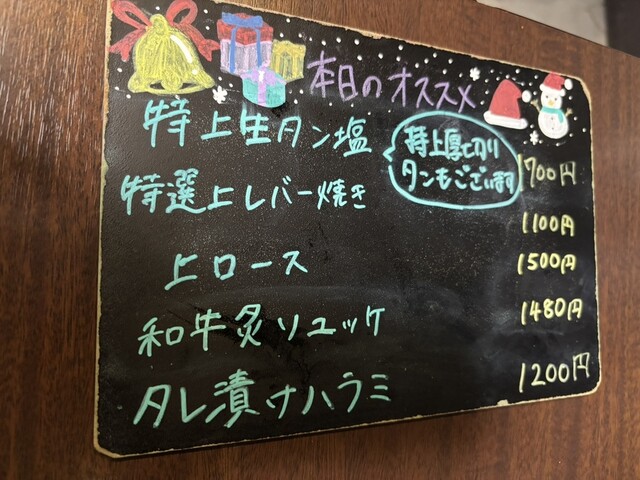 本日のオススメ
特上生タン塩 1700円
特上厚切り
タンもございます
特選上レバー焼き 1100円
上ロース 1500円
和牛炙りユッケ 1480円
タレ漬けハラミ 1200円